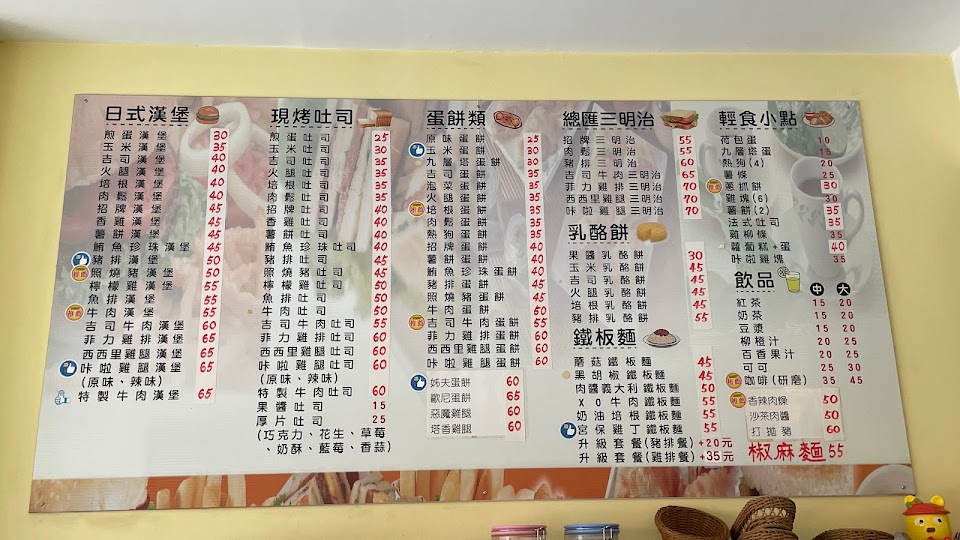 日式漢堡
煎蛋漢堡 30
玉米漢堡 35
吉司漢堡 40
火腿漢堡 40
培根漢堡 40
肉鬆漢堡 40
招牌漢堡 45
香雞漢堡 45
薯餅漢堡 45
鮪魚珍珠漢堡 45
豬排漢堡 50
照燒豬漢堡 50
檸檬雞漢堡 55
魚排漢堡 55
牛肉漢堡 55
吉司牛肉漢堡 60
菲力雞排漢堡 65
西西里雞腿漢堡 65
咔啦雞腿漢堡 65
(原味、辣味)
特製牛肉漢堡 65
現烤吐司
煎蛋吐司 25
玉米吐司 30
吉司吐司 35
火腿吐司 35
培根吐司 35
肉鬆吐司 35
招牌吐司 40
香雞吐司 40
薯餅吐司 40
鮪魚珍珠吐司 40
豬排吐司 45
照燒豬吐司 45
檸檬雞吐司 50
魚排吐司 50
牛肉吐司 50
吉司牛肉吐司 55
菲力雞排吐司 60
西西里雞腿吐司 60
咔啦雞腿吐司 60
(原味、辣味)
特製牛肉吐司 60
果醬吐司 15
厚片吐司 25
(巧克力、花生、草莓
、奶酥、藍莓、香蒜)
蛋餅類
原味蛋餅 25
玉米蛋餅 30
九層塔蛋餅 30
吉司蛋餅 35
泡菜蛋餅 35
火腿蛋餅 35
培根蛋餅 35
肉鬆蛋餅 35
熱狗蛋餅 35
招牌蛋餅 40
薯餅蛋餅 40
鮪魚珍珠蛋餅 40
豬排蛋餅 45
照燒豬蛋餅 45
牛肉蛋餅 50
吉司牛肉蛋餅 55
菲力雞排蛋餅 60
西西里雞腿蛋餅 60
咔啦雞腿蛋餅 60
姊夫蛋餅 60
歐尼蛋餅 65
惡魔雞腿 60
塔香雞腿 60
總匯三明治
招牌三明治 55
肉鬆三明治 55
豬排三明治 60
吉司牛肉三明治 65
菲力雞排三明治 70
西西里雞三明治 70
咔啦雞三明治 70
乳酪餅
果醬乳酪餅 30
玉米乳酪餅 45
吉司乳酪餅 45
火腿乳酪餅 45
培根乳酪餅 45
豬排乳酪餅 55
鐵板麵
蘑菇鐵板麵 45
黑胡椒鐵板麵 45
肉醬義大利鐵板麵 50
xo牛肉鐵板麵 55
奶油培根鐵板麵 55
宮保雞丁鐵板麵 55
升級套餐(豬排餐)+20元
升級套餐(雞排餐)+35元
輕食小點
荷包蛋 10
九層塔蛋 15
熱狗(4) 20
薯條 25
蔥抓餅 30
雞塊(6) 30
薯餅(2) 35
法式吐司 35
雞柳條 35
蘿蔔糕+蛋 40
咔啦雞塊 35
飲品 中 大
紅茶 15 20
奶茶 15 20
豆漿 15 20
柳橙汁 20 25
百香果汁 20 25
可可 25 30
咖啡(研磨) 35 45
香辣肉燥 50
沙茶肉醬 50
打拋豬 60
椒麻麵 55